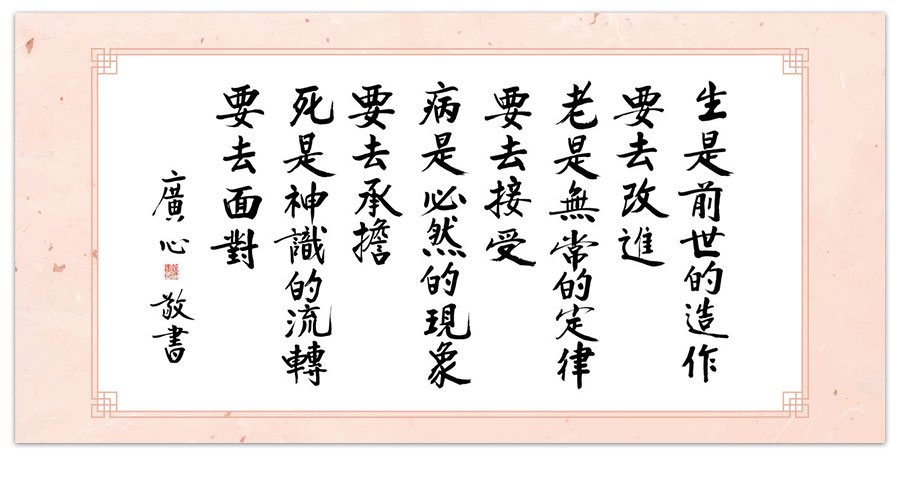 生是前世的造作
要去改進
老是無常的定律
要去接受
病是必然的現象
要去承擔
死是神識的流轉
要去面對
廣心 敬書